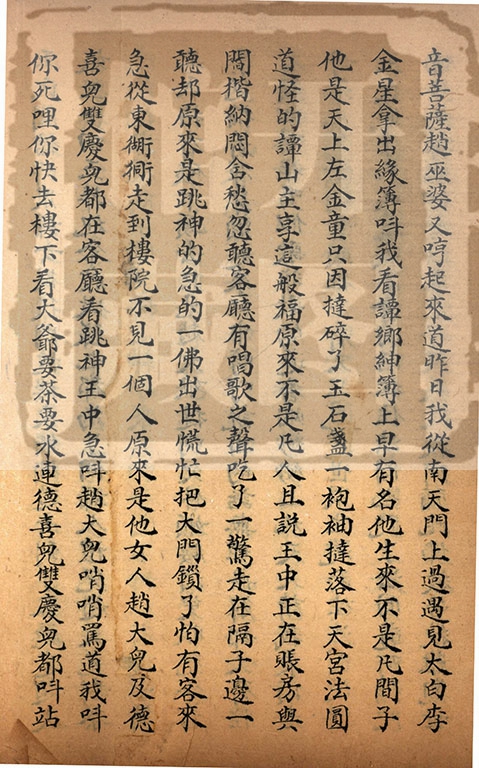 音菩薩趙巫婆又哼起來道昨日我從南天門上過遇見太白李
金星拿出緣簿呌我看譚鄉紳簿上早有名他生來不是凡間子
他是天上左金童只因撻碎了玉石盞一袍袖撻落下天宮法圓
道怪的譚山主享這般福原來不是凡人且説王中正在賬房與
閻揩納悶舍愁忽聽客廳有唱歌之聲吃了一驚走在隔子邊一
聽却原來是跳神的急的一佛出世慌忙把大門鎖了怕有客來
急從東衚衕走到樓院不見一個人原來是他女人趙大兒及德
喜兒雙慶兒都在客廳看跳神王中急呌趙大兒哨哨罵道我呌
你死哩你快去樓下看大爺要茶要水連德喜兒雙慶兒都呌站